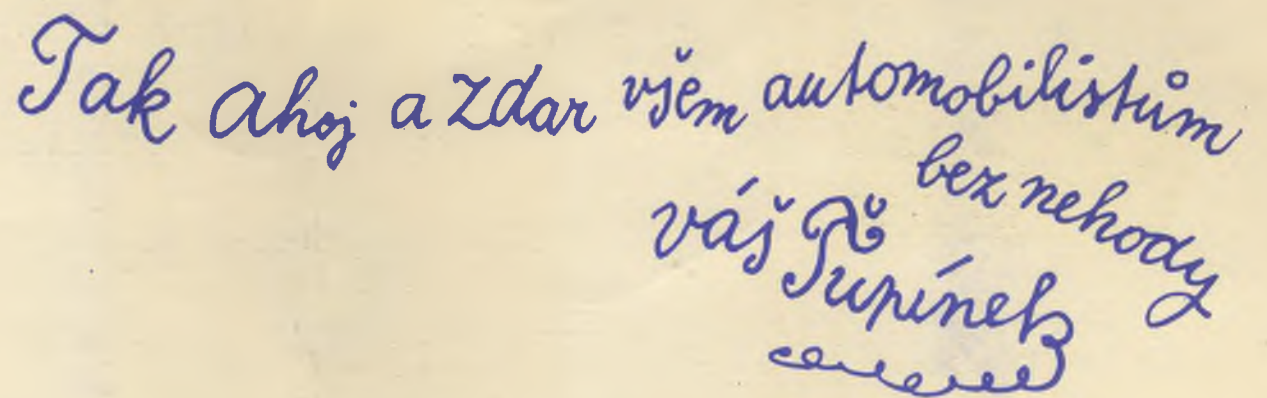 Tak ahoj a zdar všem automobilistům
bez nehody
váš Ťupínek